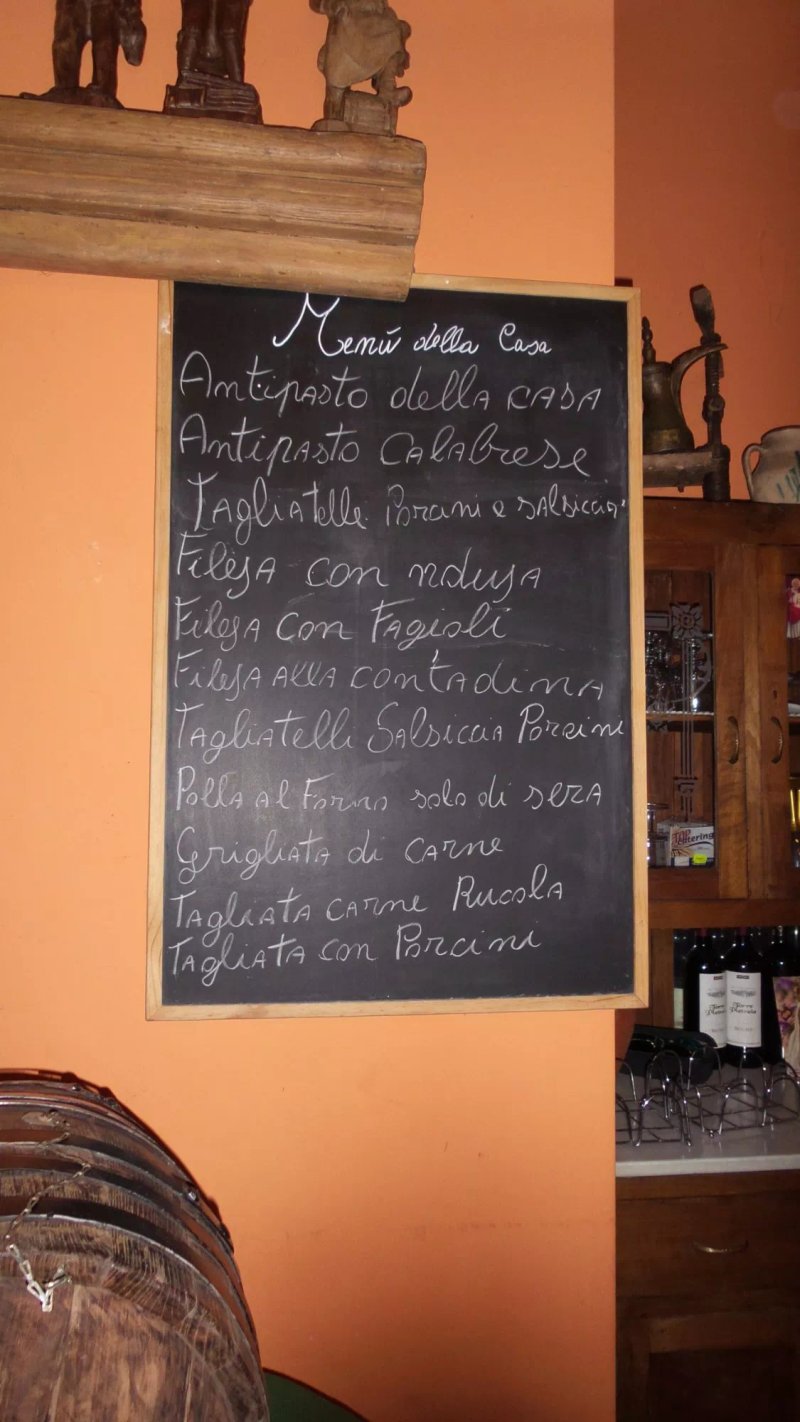 Menú della Casa
Antipasto della CASA
Antipasto Calabrese
Tagliatelle Porcini e salsiccia
Fileja con nduja
Fileja con Fagioli
Fileja alla contadina
Tagliatelli Salsiccia Porcini
al Forno solo di sera
Grigliata di carne
Tagliata carne Rucola
Tagliata con Porcini
TOP
catering